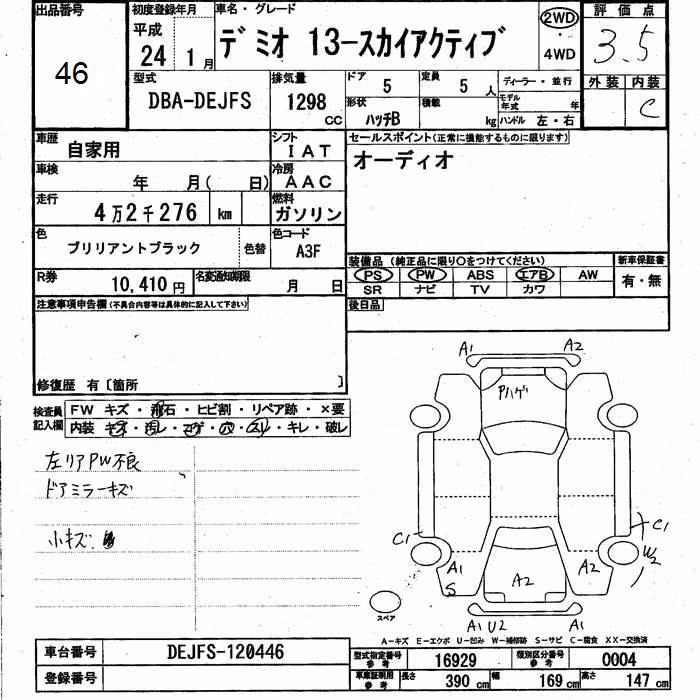 出品番号
46
初度登録年月
平成
24年 1月
車名・グレード
デミオ 13-スカイアクティブ
2WD
・
4WD
評価点
3.5
外装 内装
C
型式
DBA-DEJFS
排気量
1298
CC
ドア
5
定員
5人
形状
ハッチB
積載
kg
ディーラー・並行
モデル年式 年
ハンドル 左・右
車歴
自家用
シフト
IAT
車検
年 月( 日)
冷房
AAC
走行
4万2千276 km
燃料
ガソリン
色
ブリリアントブラック
色替
色コード
A3F
R券
10,410円
名変通知期限
月 日
セールスポイント(正常に機能するものに限ります)
オーディオ
装備品(純正品に限り○をつけてください)
PS PW ABS エアB AW
SR ナビ TV カワ
新車保証書
有・無
後日品
注意事項申告欄(不具合内容等は具体的に記入して下さい)
修復歴 有〔箇所 〕
検査員記入欄
FW キズ・飛石・ヒビ割・リペア跡・×要
内装 キズ・汚レ・コゲ・穴・スリ・キレ・破レ
左リアPW不良
ドアミラーキズ
小キズ
A1 A2
アハゲ
C1
A1
S
A2
A2
C1
W2
A1 U2 A1
スペア
A-キズ E-エクボ U-凹み W-補修跡 S-サビ C-腐食 XX-交換済
車台番号
DEJFS-120446
登録番号
型式指定番号
参考
16929
類別区分番号
参考
0004
車庫証明用
参考
長さ 390cm
幅 169cm
高さ 147cm